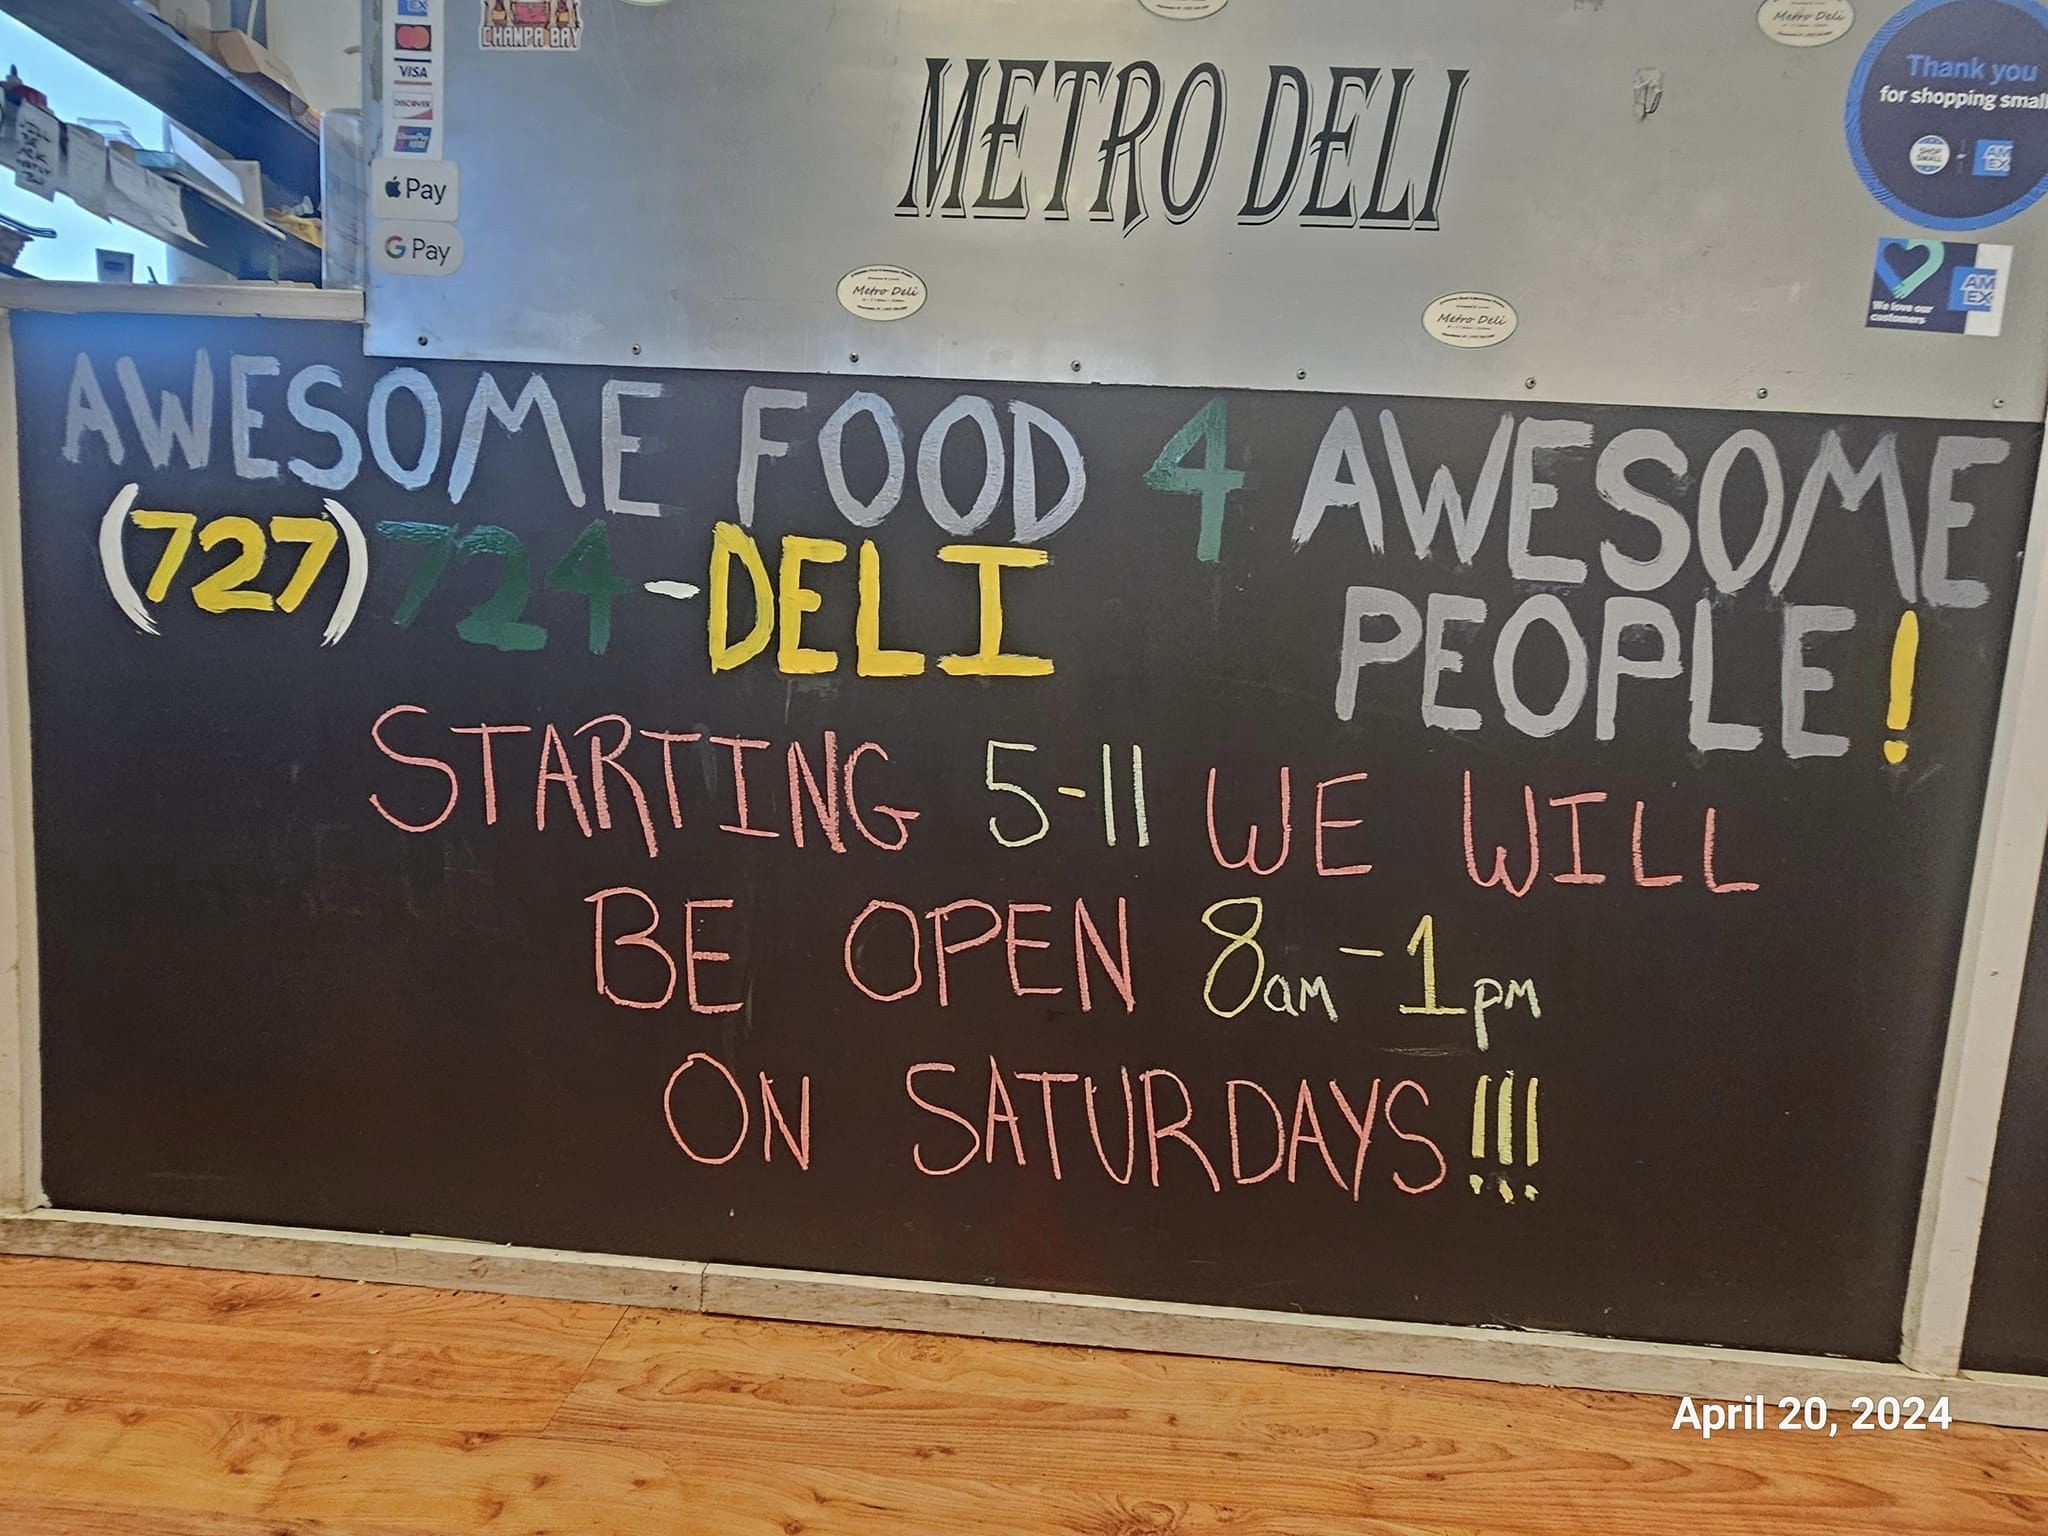 CHAMPA BAY
VISA
DISCOVER
Pay
G Pay
METRO DELI
Metro Deli
Thank you
for shopping small
SHOP SMALL
AM EX
Metro Deli
Metro Deli
We love our
customers
AM EX
AWESOME FOOD 4 AWESOME
PEOPLE!
(727) 724-DELI
STARTING 5-11 WE WILL
BE OPEN 8am-1pm
ON SATURDAYS!!!
April 20, 2024